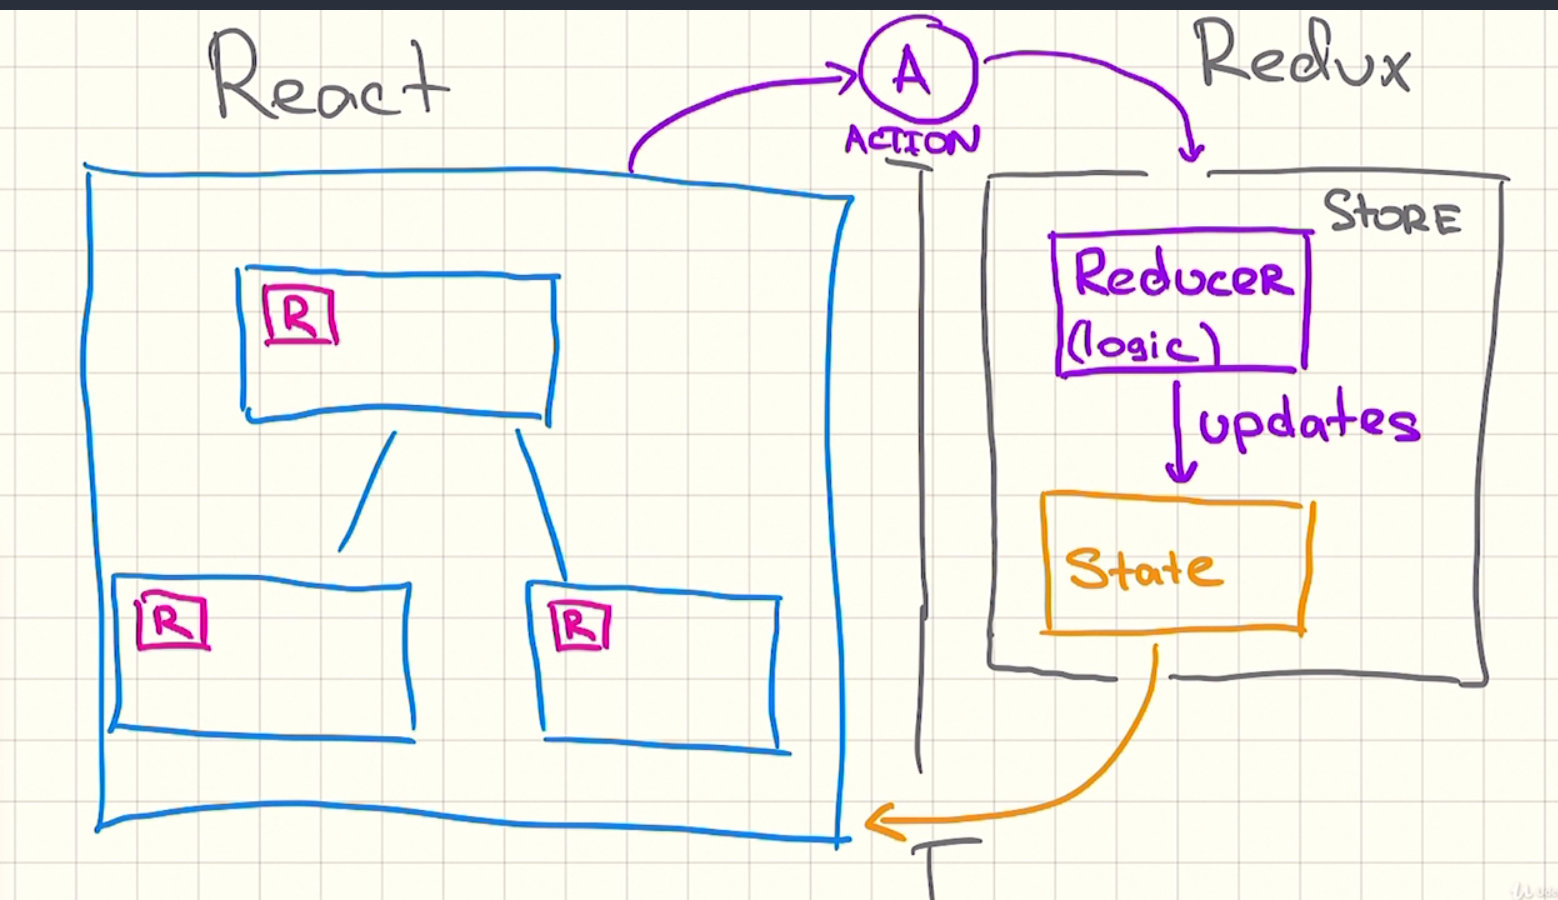 React
A
ACTION
Redux
STORE
R
Reducer
(logic)
updates
R
R
State